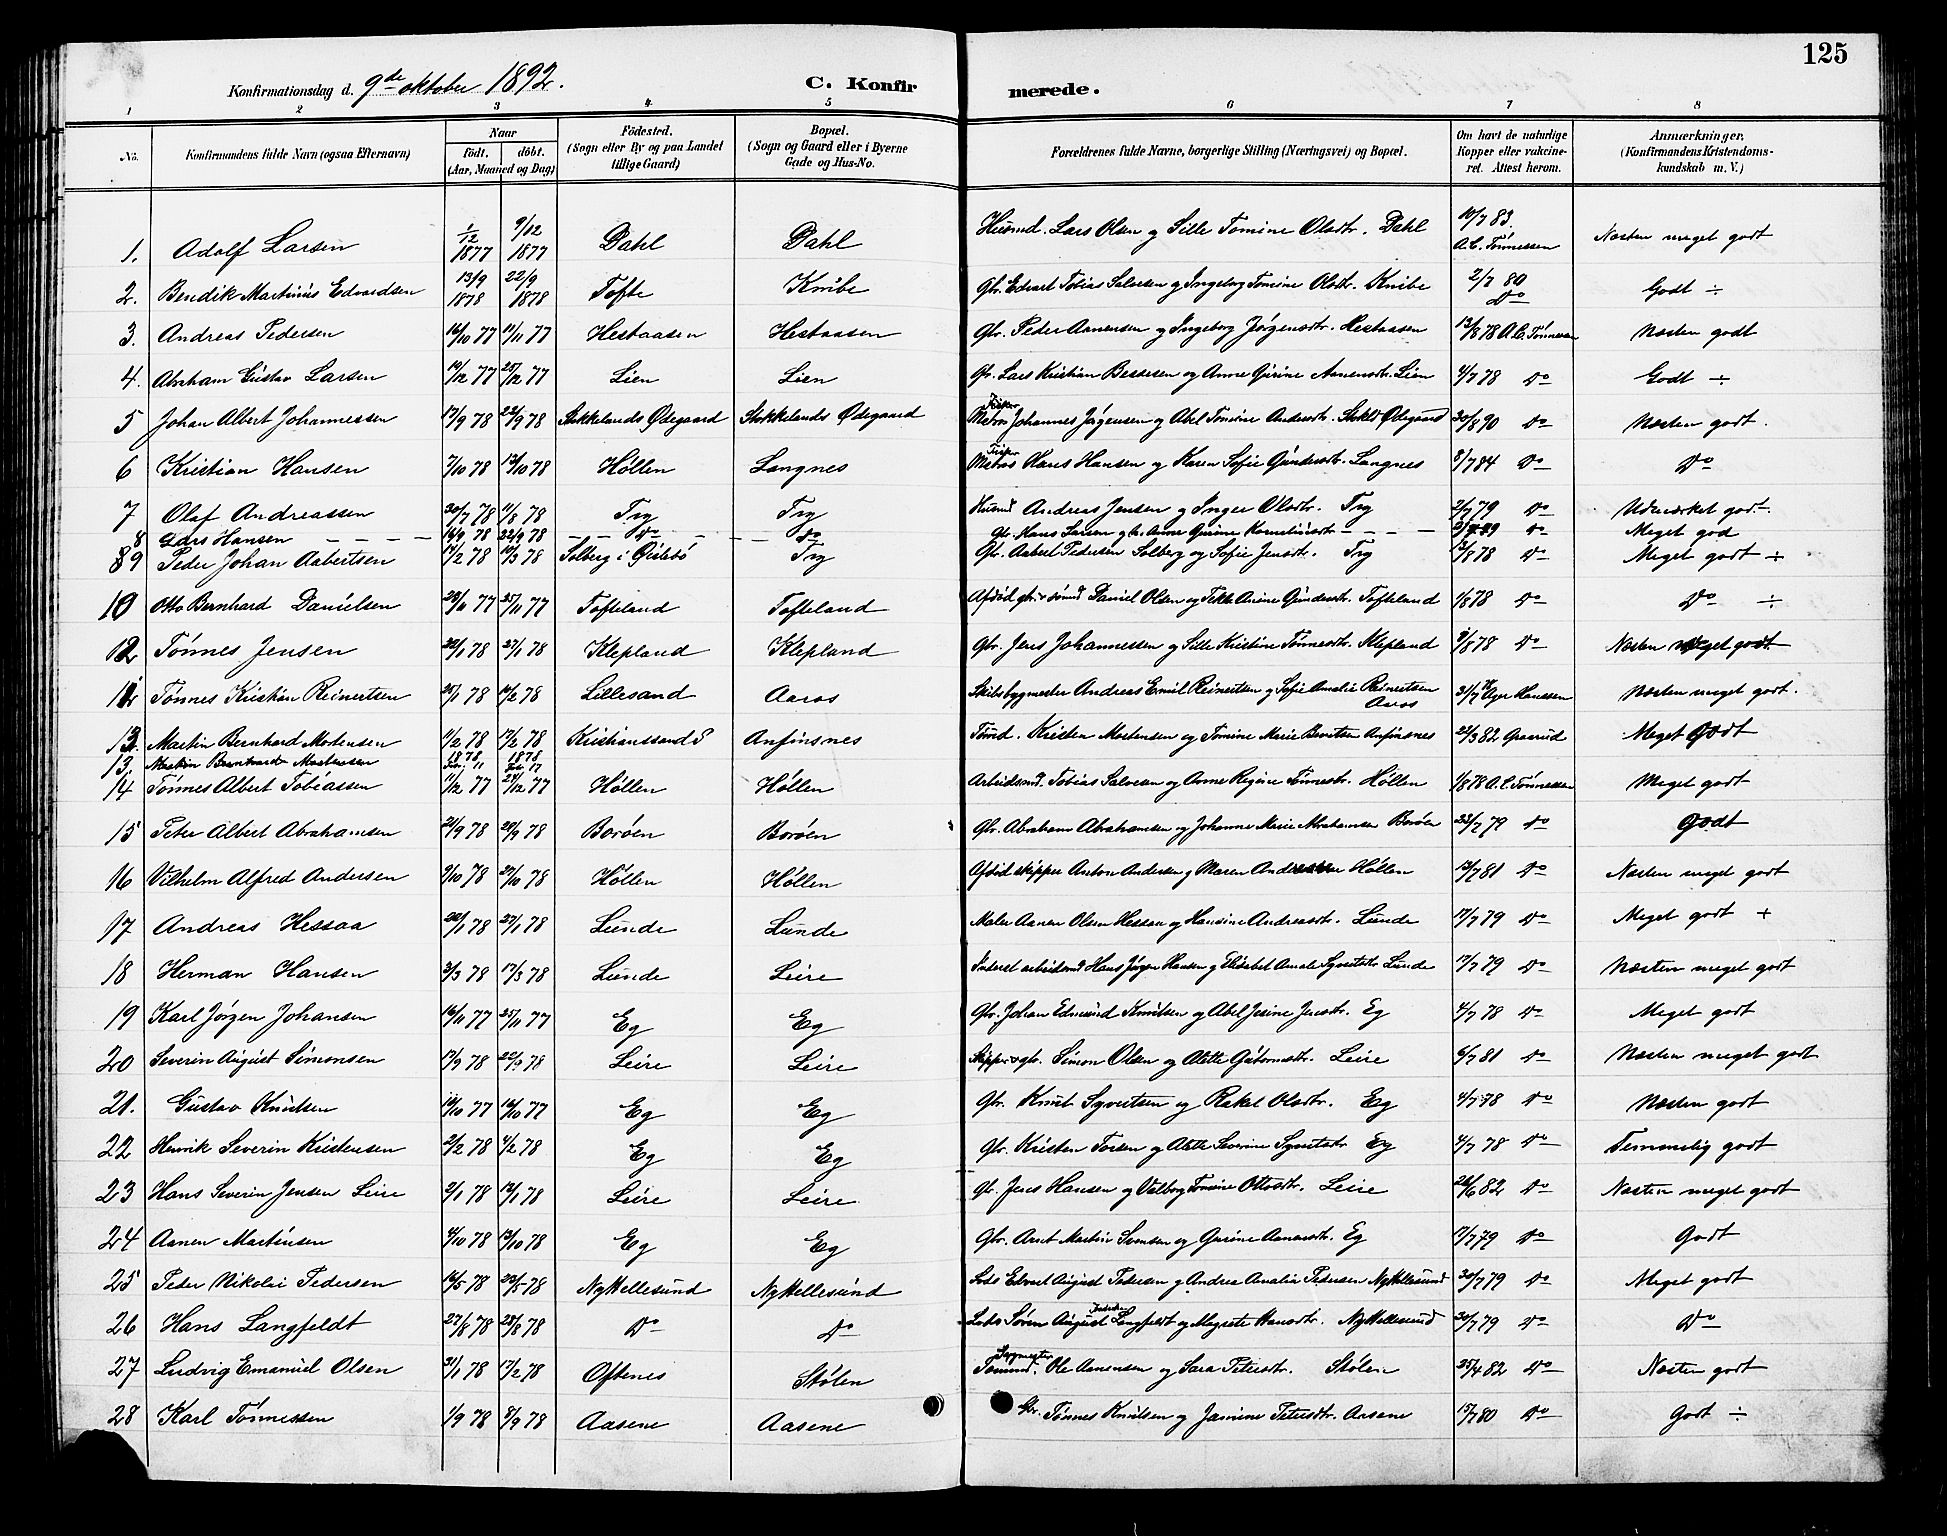 125
Konfirmationsdag d. 9de oktober 1892. C. Konfirmerede.
1 2 3 4 5 6 7 8
No. Konfirmandens fulde Navn (ogsaa Efternavn) Naar födt. döbt. (Aar, Maaned og Dag) Födested. (Sogn eller By og paa Landet tillige Gaard) Bopæl. (Sogn og Gaard eller i Byerne Gade og Hus-No. Forældrenes fulde Navne, borgerlige Stilling (Næringsvei) og Bopæl. Om havt de naturlige Kopper eller vakcineret. Attest herom. Anmærkninger. (Konfirmandens Kristendomskundskab m. V.)
1. Adolf Larsen 1/12 1877 9/12 1877 Dahl Dahl Husmd. Lars Olsen og Sille Tomine Olsdtr. Dahl 10/7 83. A.C. Tönnessen Næsten meget godt
2. Bendik Martinius Edvardsen 13/9 1878 22/9 1878 Tofte Knibe Gbr. Edvart Tobias Salvesen og Ingeborg Tomine Olsdtr. Knibe 2/7 80 Do Godt ÷
3. Andreas Pedersen 16/10 77 11/11 77 Hestaasen Hestaasen Gbr. Peder Aanensen og Ingeborg Jørgensdtr. Hestaasen 13/8 78 A.C. Tönnessen Næsten godt
4. Abraham Gustav Larsen 14/12 77 25/12 77 Lien Lien Gbr. Lars Kristian Bessesen og Anne Gurine Aanensdtr. Lien 4/7 78 Do Godt ÷
5 Johan Albert Johannessen 17/9 78 22/9 78 Stokkelands Ødegaard Stokkelands Ødegaard Fisker Johannes Jørgensen og Abel Tomine Andersdtr. Stokld Ødegaard 30/8 90 Do Næsten godt.
6 Kristian Hansen 7/10 78 13/10 78 Höllen Langnes Fisker Matros Hans Hansen og Karen Sofie Gundersdtr. Langnes 8/7 84 Do Do
7 Olaf Andreassen 30/7 78 11/8 78 Try Try Husmd Andreas Jensen og Inger Olsdtr. Try 2/7 79 Do Udmærket godt
8 Lars Hansen 16/9 78 22/9 78 Do Do Gbr. Hans Larsen og h. Anne Gurine Korneliusdtr Do Meget god
9 Peder Johan Aabertsen 14/2 78 10/3 78 Solberg i Øislebö Try Gbr. Aabert Pedersen Solberg og Sofie Jensdtr. Try 13/8 78 Do Meget godt ÷
10 Otto Bernhard Danielsen 23/11 77 25/11 77 Tofteland Tofteland Afdöd gbr. Daniel Olsen og Tekla Anine Gundersdtr. Tofteland 1/8 78 Do Do ÷
12 Tönnes Jensen 22/1 78 27/1 78 Klepland Klepland Gbr. Jens Johannessen og Sille Kristine Tönnesdtr. Klepland 9/8 78 Do Næsten meget godt.
11 Tönnes Kristian Reinertsen 25/1 78 10/2 78 Lillesand Aaros Skibsbygmester Andreas Emil Reinertsen og Sofie Amalie Reinertsen Aaros 31/7 Hanssen Næsten meget godt.
13. Martin Bernhard Mortensen 11/2 78 17/2 78 Kristianssand Anfinsnes Tömd. Kristen Mortensen og Tomine Marie Berntsen Anfinsnes 22/3 82 Graarud Meget Godt
13. Martin Bernhard Mortensen 1878 Feb. 11 1878 Feb 17
14 Tönnes Albert Tobiassen 11/12 77 28/12 77 Höllen Höllen Arbeidsmd. Tobias Salvesen og Anne Regine Tönnesdtr. Höllen 1/8 78 A.C. Tönnessen Meget godt
15 Peter Albert Abrahamsen 21/9 78 29/9 78 Boröen Boröen Gbr. Abraham Abrahamsen og Johanne Marie Abrahamsen Boröen 23/7 79 Do Godt
16 Vilhelm Alfred Andersen 9/10 78 27/10 78 Höllen Höllen Afdöd skipper Anton Andersen og Maren Höllen 13/7 81 Do Næsten meget godt
17 Andreas Hessaa 22/1 78 27/1 78 Lunde Lunde Maler Aanen Olsen Hessaa og Hansine Andreasdtr. Lunde 17/7 79 Do Meget godt +
18 Herman Hansen 3/3 78 17/3 78 Lunde Leire arbeidsmd Hans Jørgen Hansen og Elisabet Amalie Syvertsdtr Lunde 17/7 79 Do Næsten meget godt
19 Karl Jörgen Johansen 16/11 77 25/11 77 Eg Eg Gbr. Johan Edmund Knutsen og Abel Jesine Jensdtr. Eg 4/7 78 Do Meget godt
20 Severin August Simonsen 17/9 78 22/9 78 Leire Leire Skipper & gbr. Simon Olsen og Alette Gutormsdtr. Leire 4/7 81 Do Næsten meget godt
21. Gustav Knutsen 10/10 77 16/10 77 Eg Eg Gbr. Knut Syvertsen og Rakel Olsdtr. Eg 4/7 78 Do Næsten godt
22 Henrik Severin Kristensen 2/2 78 4/2 78 Eg Eg Gbr. Kristen Torsen og Alette Severine Syvertsdtr Eg 4/7 78 Do Temmelig godt
23 Hans Severin Jensen Leire 2/1 78 13/1 78 Leire Leire Gbr. Jens Hansen og Valborg Tomine Ottosdtr. Leire 26/6 82 Do Næsten meget godt
24 Aanen Martinsen 4/10 78 13/10 78 Eg Eg Gbr. Arnt Martin Svensen og Gurine Aanensdtr. Eg 17/7 79 Do Godt
25 Peder Nikolai Pedersen 16/5 78 23/5 78 Ny Hellesund Ny Hellesund Lods Edvart August Pedersen og Andrea Amalie Pedersen Ny Hellesund 30/7 79 Do Meget godt
26 Hans Langfeldt 27/8 78 28/8 78 Do Do Lods Sören August Langfeldt og Megrete Hansdtr. Ny Hellesund 30/7 79 Do Do
27 Ludvig Emanuel Olsen 31/1 78 17/2 78 Oftenes Stölen Tömmd. Ole Aanensen og Sara Petersdtr. Stölen 25/4 82 Do Næsten godt
28 Karl Tönnessen 1/9 78 8/9 78 Aasene Aasene Gbr. Tönnes Knutsen og Jasmine Petersdtr. Aasene 15/7 80 Do Godt ÷